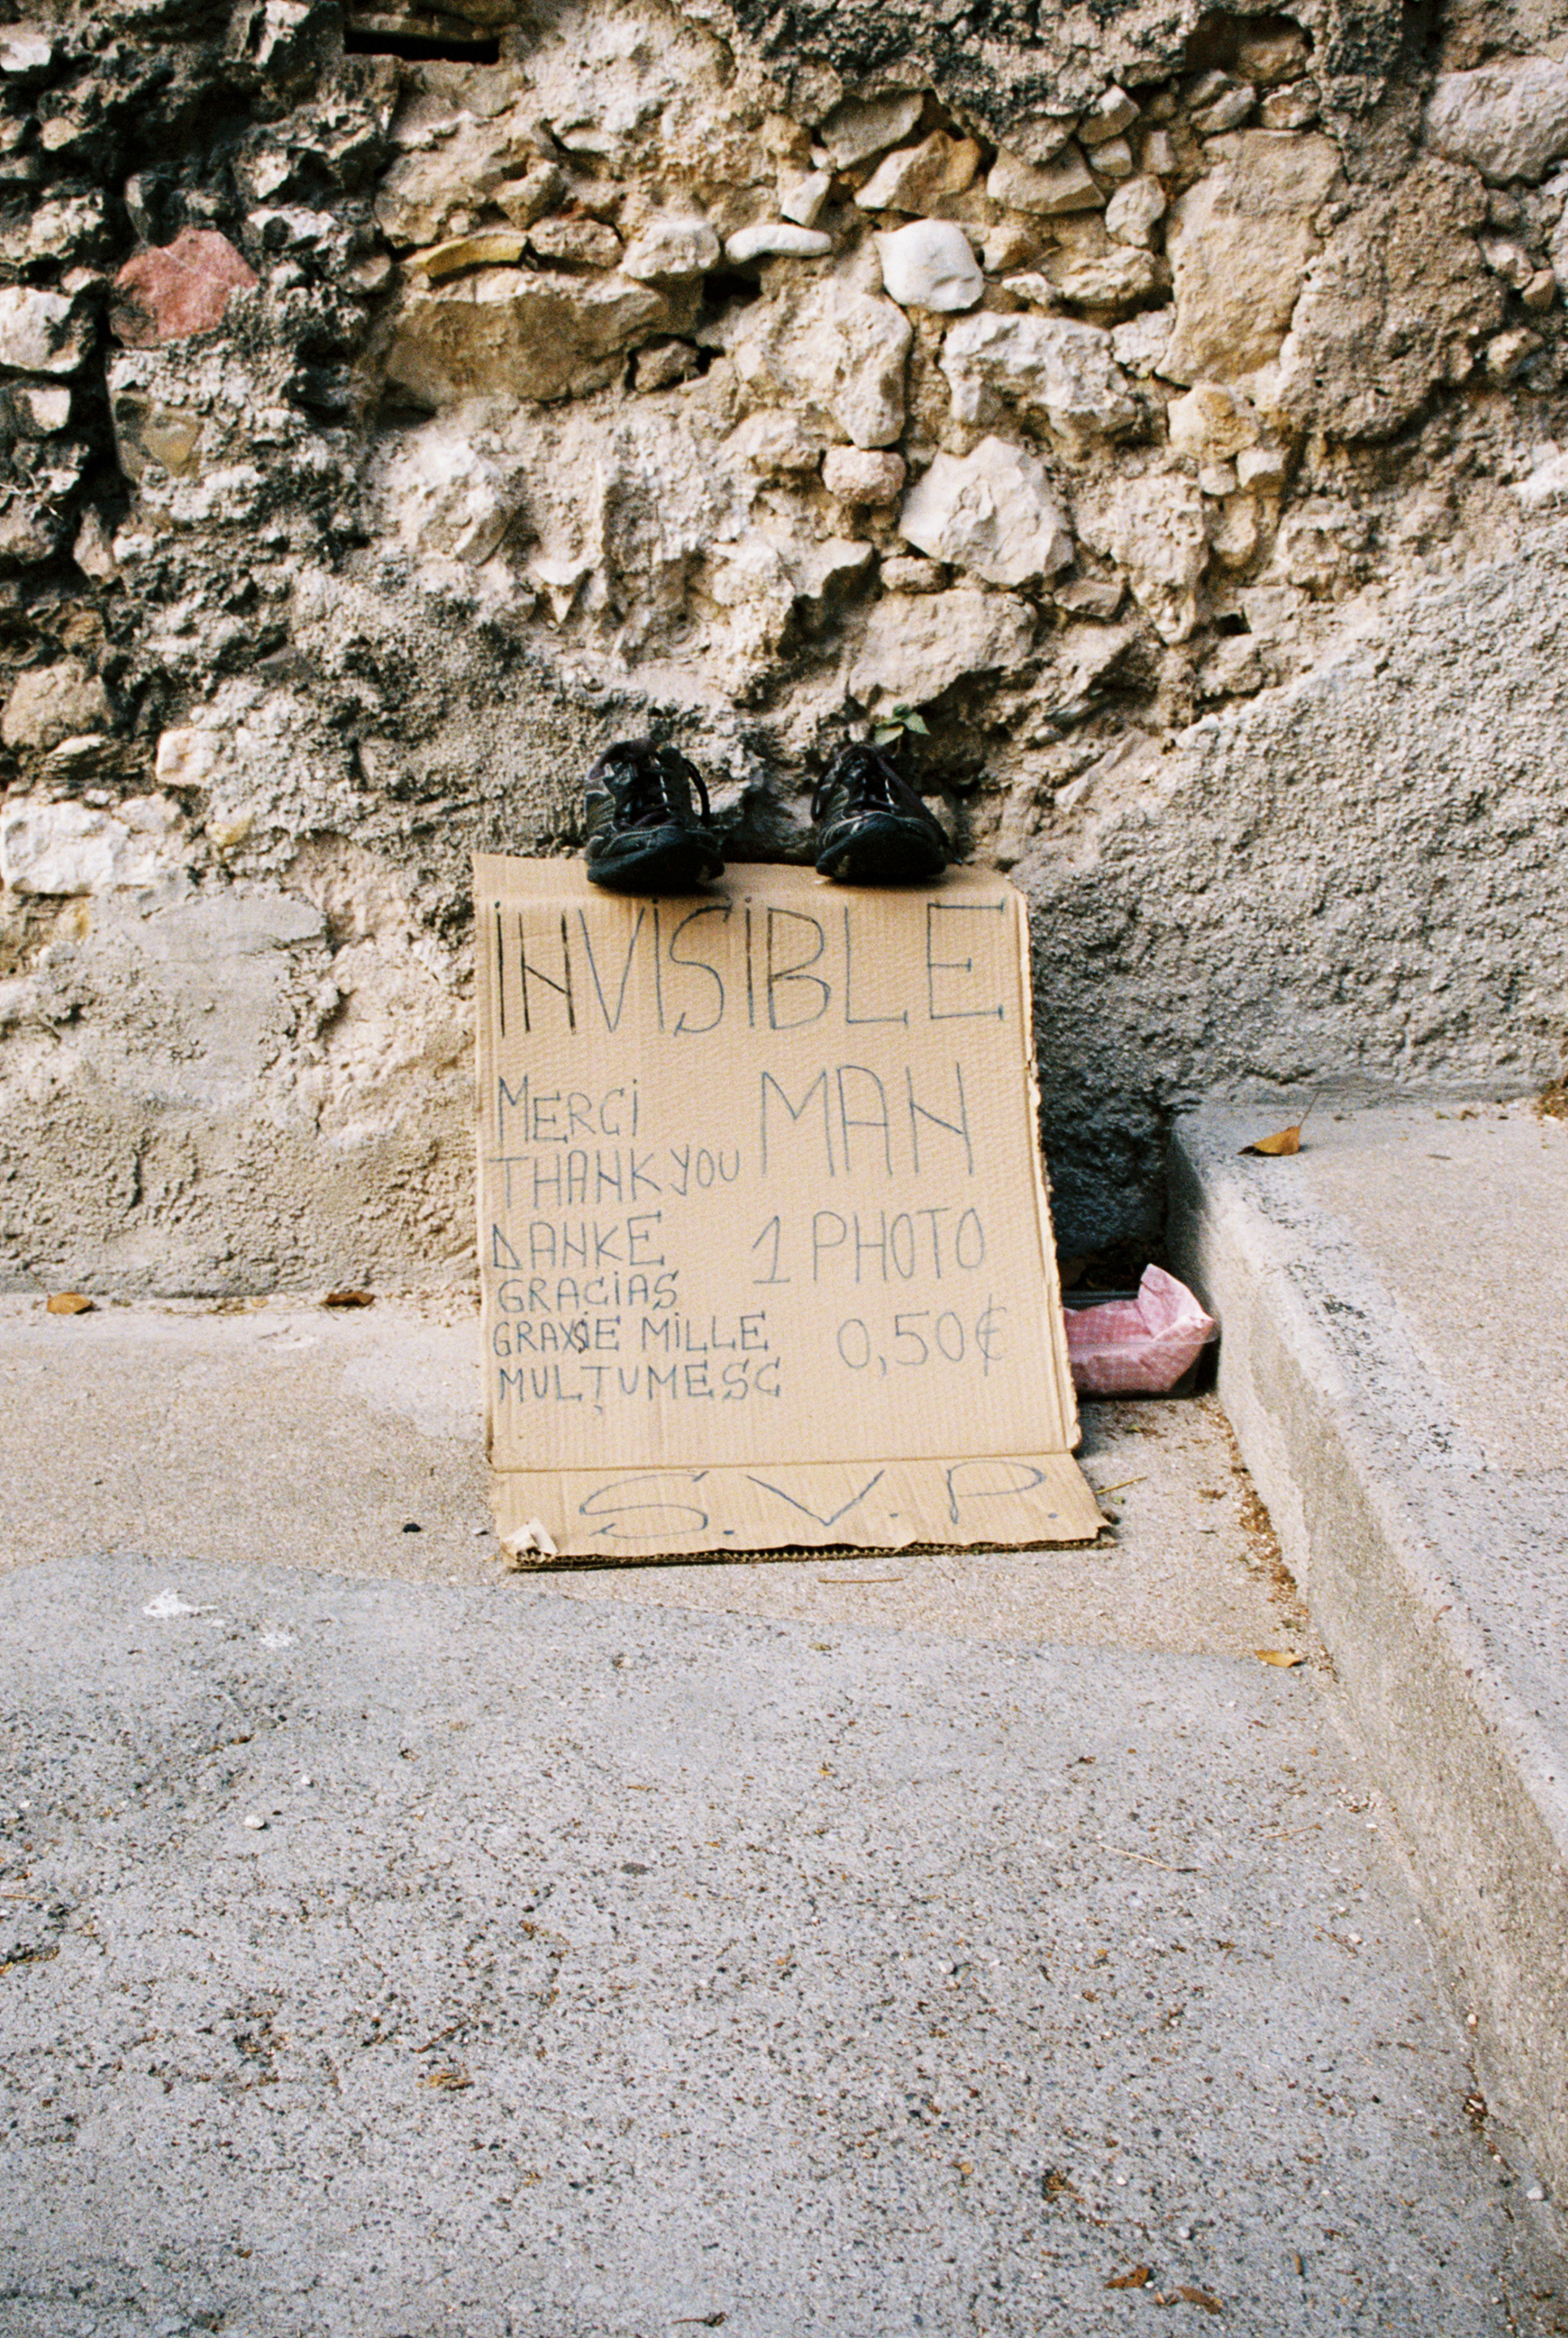 iNViSiBLE
MAN
MERCi
THANK YOU
DANKE
1 PHOTO
GRACiAS
GRAXSIE MiLLE
0,50¢
MULŢUMESC
S.V.P.